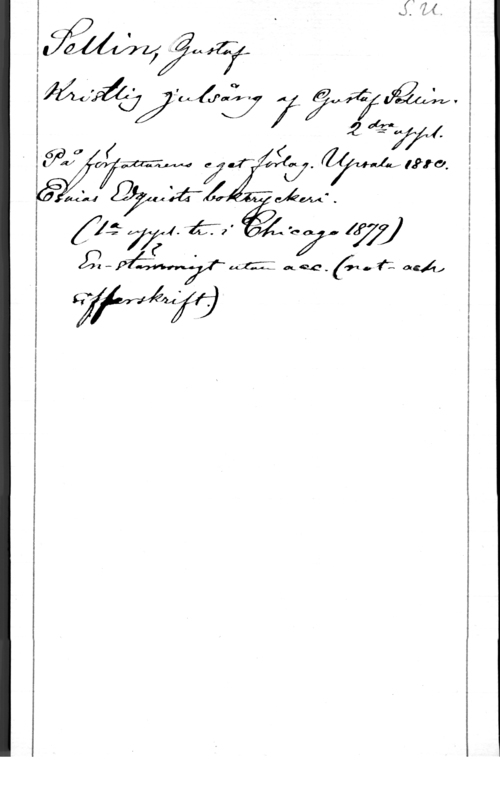 S. U.
Sellin, Gustaf
Kristlig julsång af Gustaf Sellin.
2dra uppl.
På författarens eget förlag. Upsala 1880.
Esaias Edquists boktryckeri.
(1a uppl. tr. i Chicago 1879)
En-stämmigt utan acc. (not- och
sifferskrift.)